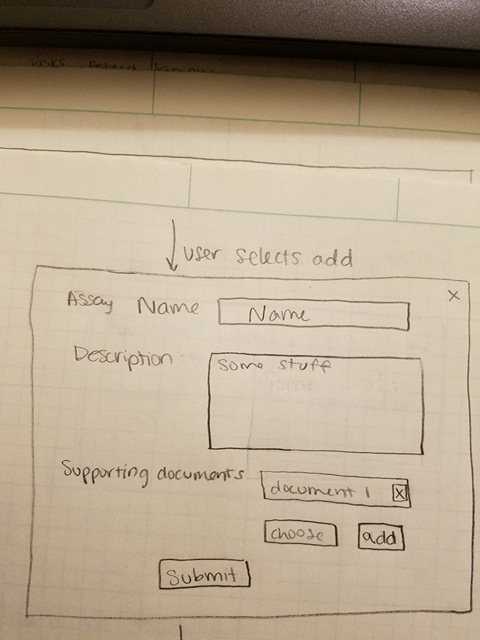 user selects add
x
Assay Name Name
Description some stuff
Supporting documents document 1 x
choose add
Submit